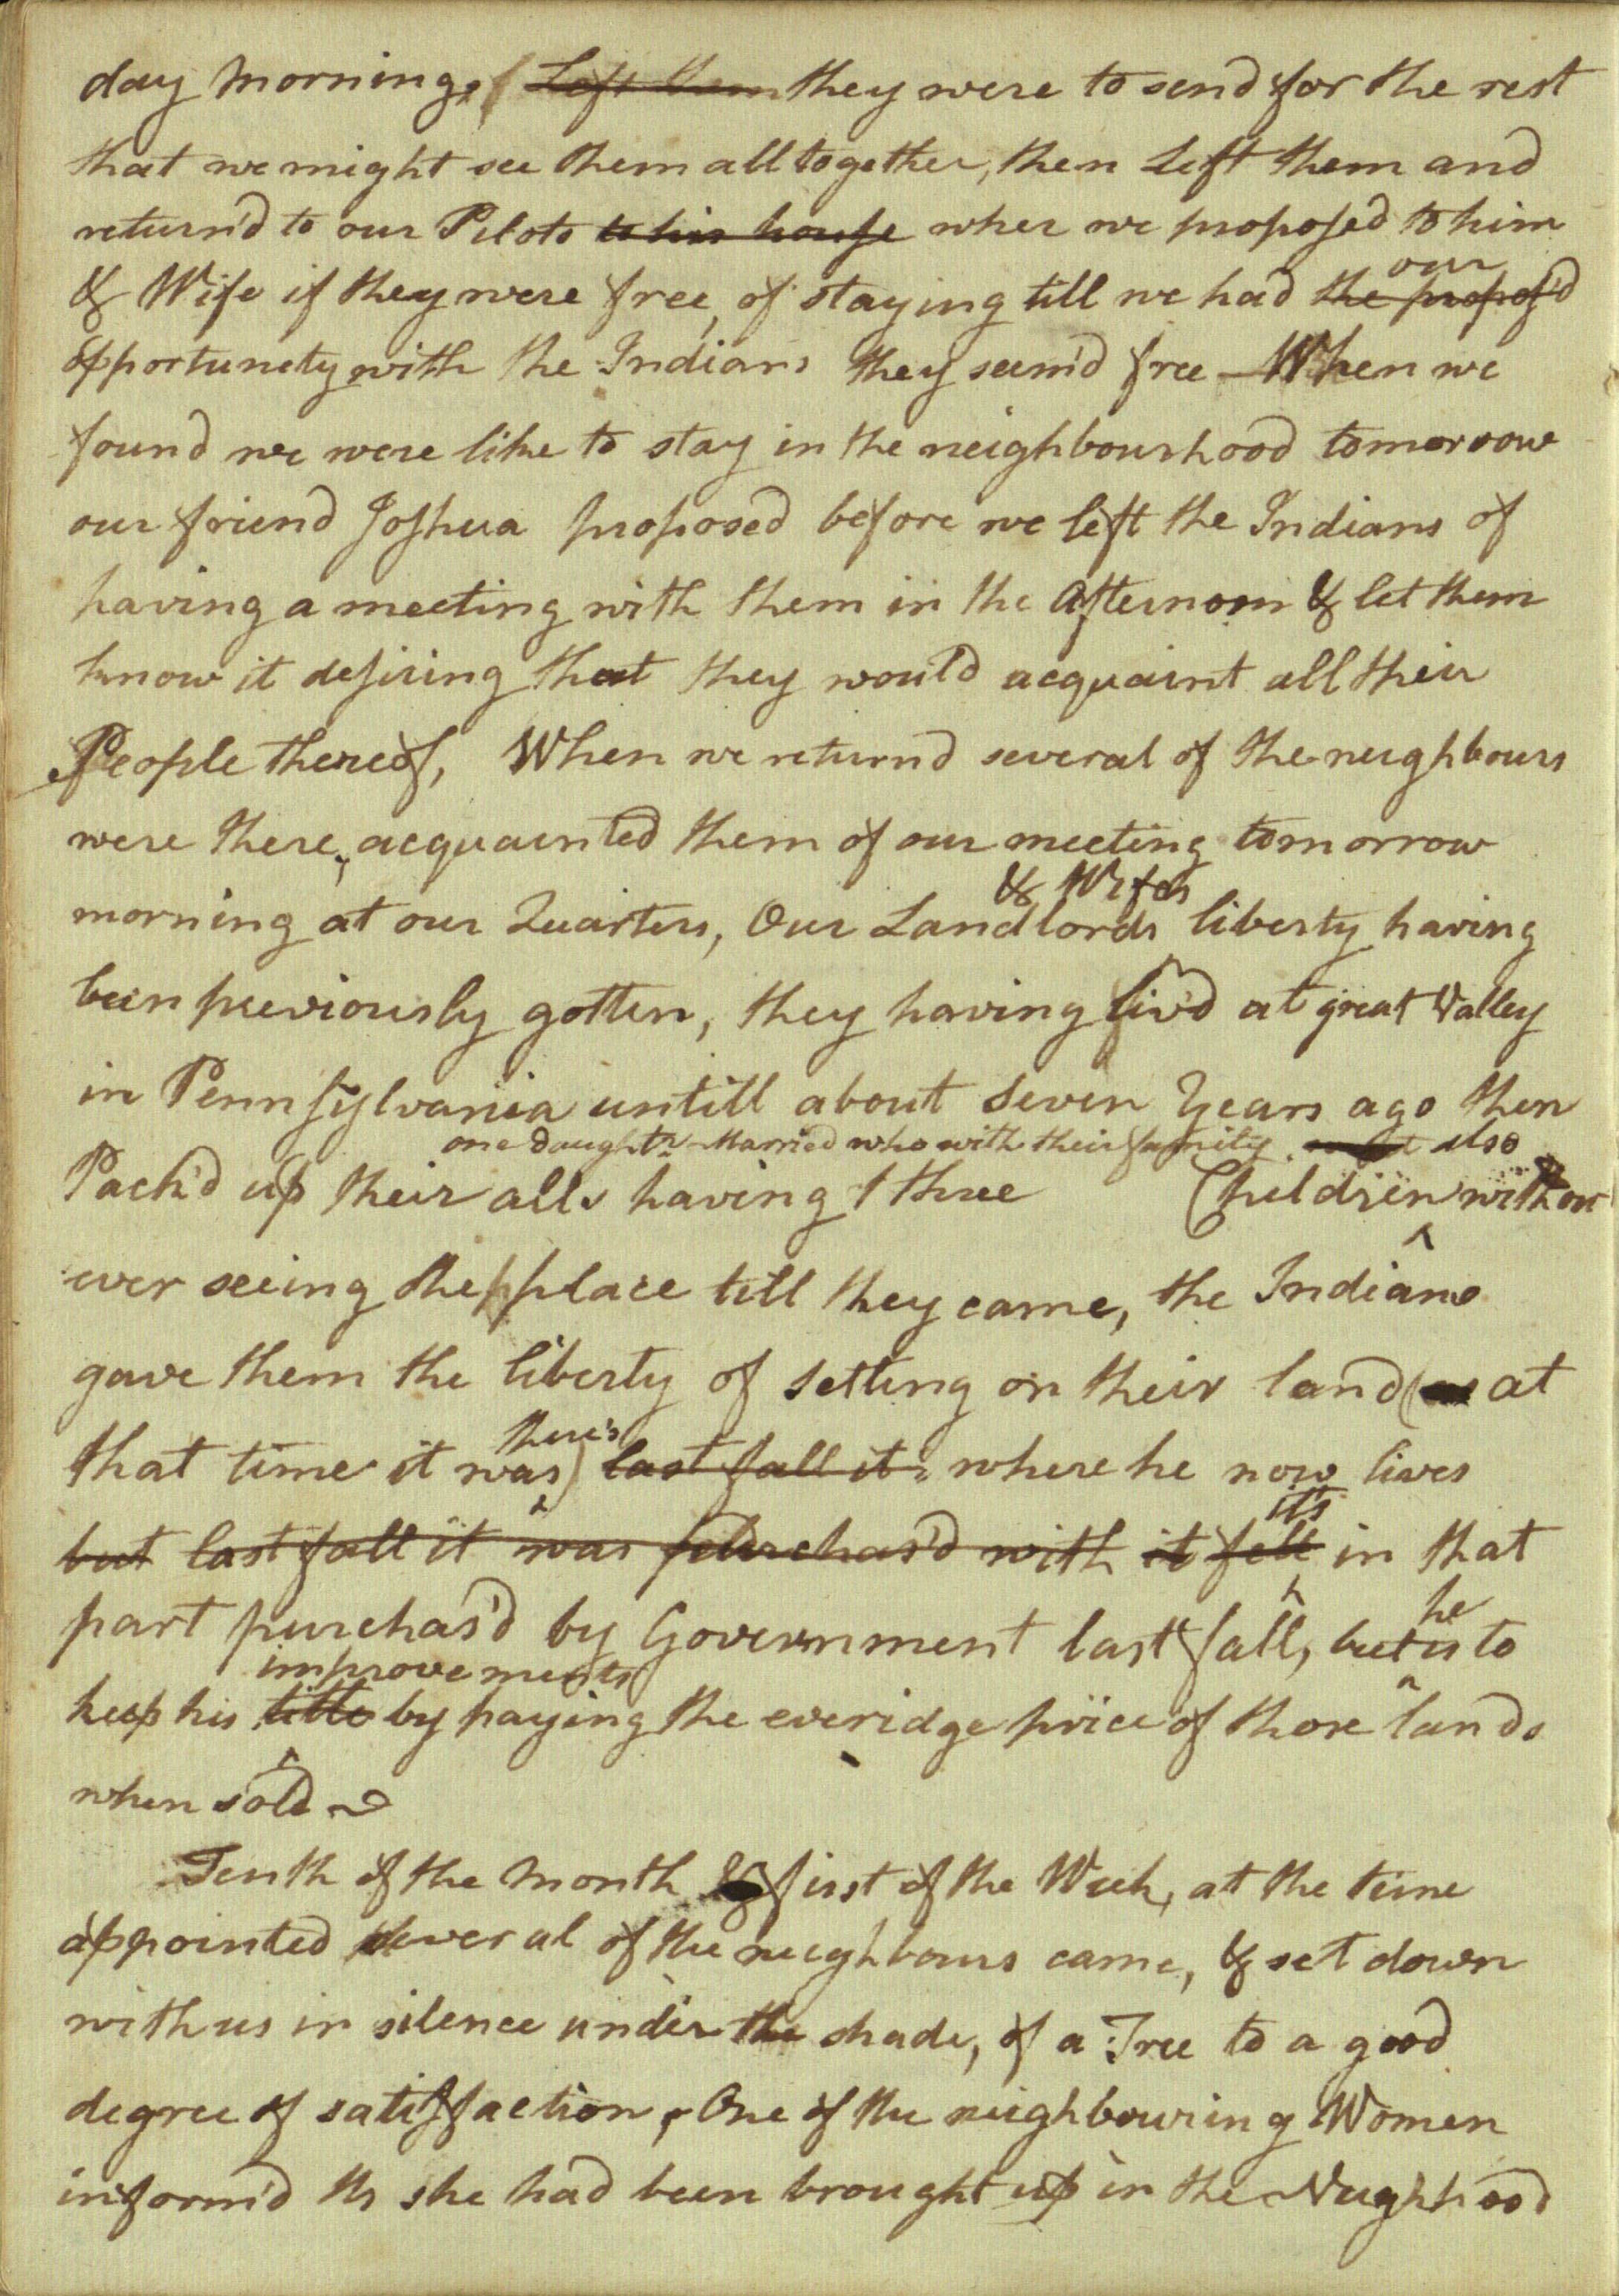 day morning, Left them they were to send for the rest
that we might see them all together, then Left them and
return'd to our Pilots to his house wher we proposed to him
& Wife if they were free, of staying till we had the propos'd our
opportunety with the Indians they seem'd free - When we
found we were like to stay in the neighbourhood tomorrow
our friend Joshua proposed before we left the Indians of
having a meeting with them in the Afternoon & let them
know it desiring that they would acquaint all their
People thereof, When we return'd several of the neighbours
were there, acquainted them of our meeting tomorrow
& Wifes
morning at our Quarters, Our Landlords liberty having
been previously gotten, they having liv'd at great Valley
in Pennsylvania untill about seven Years ago then
one daughtr Married who with their family also
Pack'd up their alls having three Children without
ever seeing the place till they came, the Indians
gave them the liberty of setting on their land (as at
there's
that time it was) last fall it where he now lives
its
but last fall it was purchas'd with it fell in that
he
part purchas'd by Government last fall, but is to
improvements
keep his title by paying the everidge price of those lands
when sold
Tenth of the month & first of the Week, at the time
appointed several of the neighbours came, & set down
with us in silence under the shade, of a Tree to a good
degree of satisfaction, One of the neighbouring Women
inform'd us she had been brought up in the Neighhood